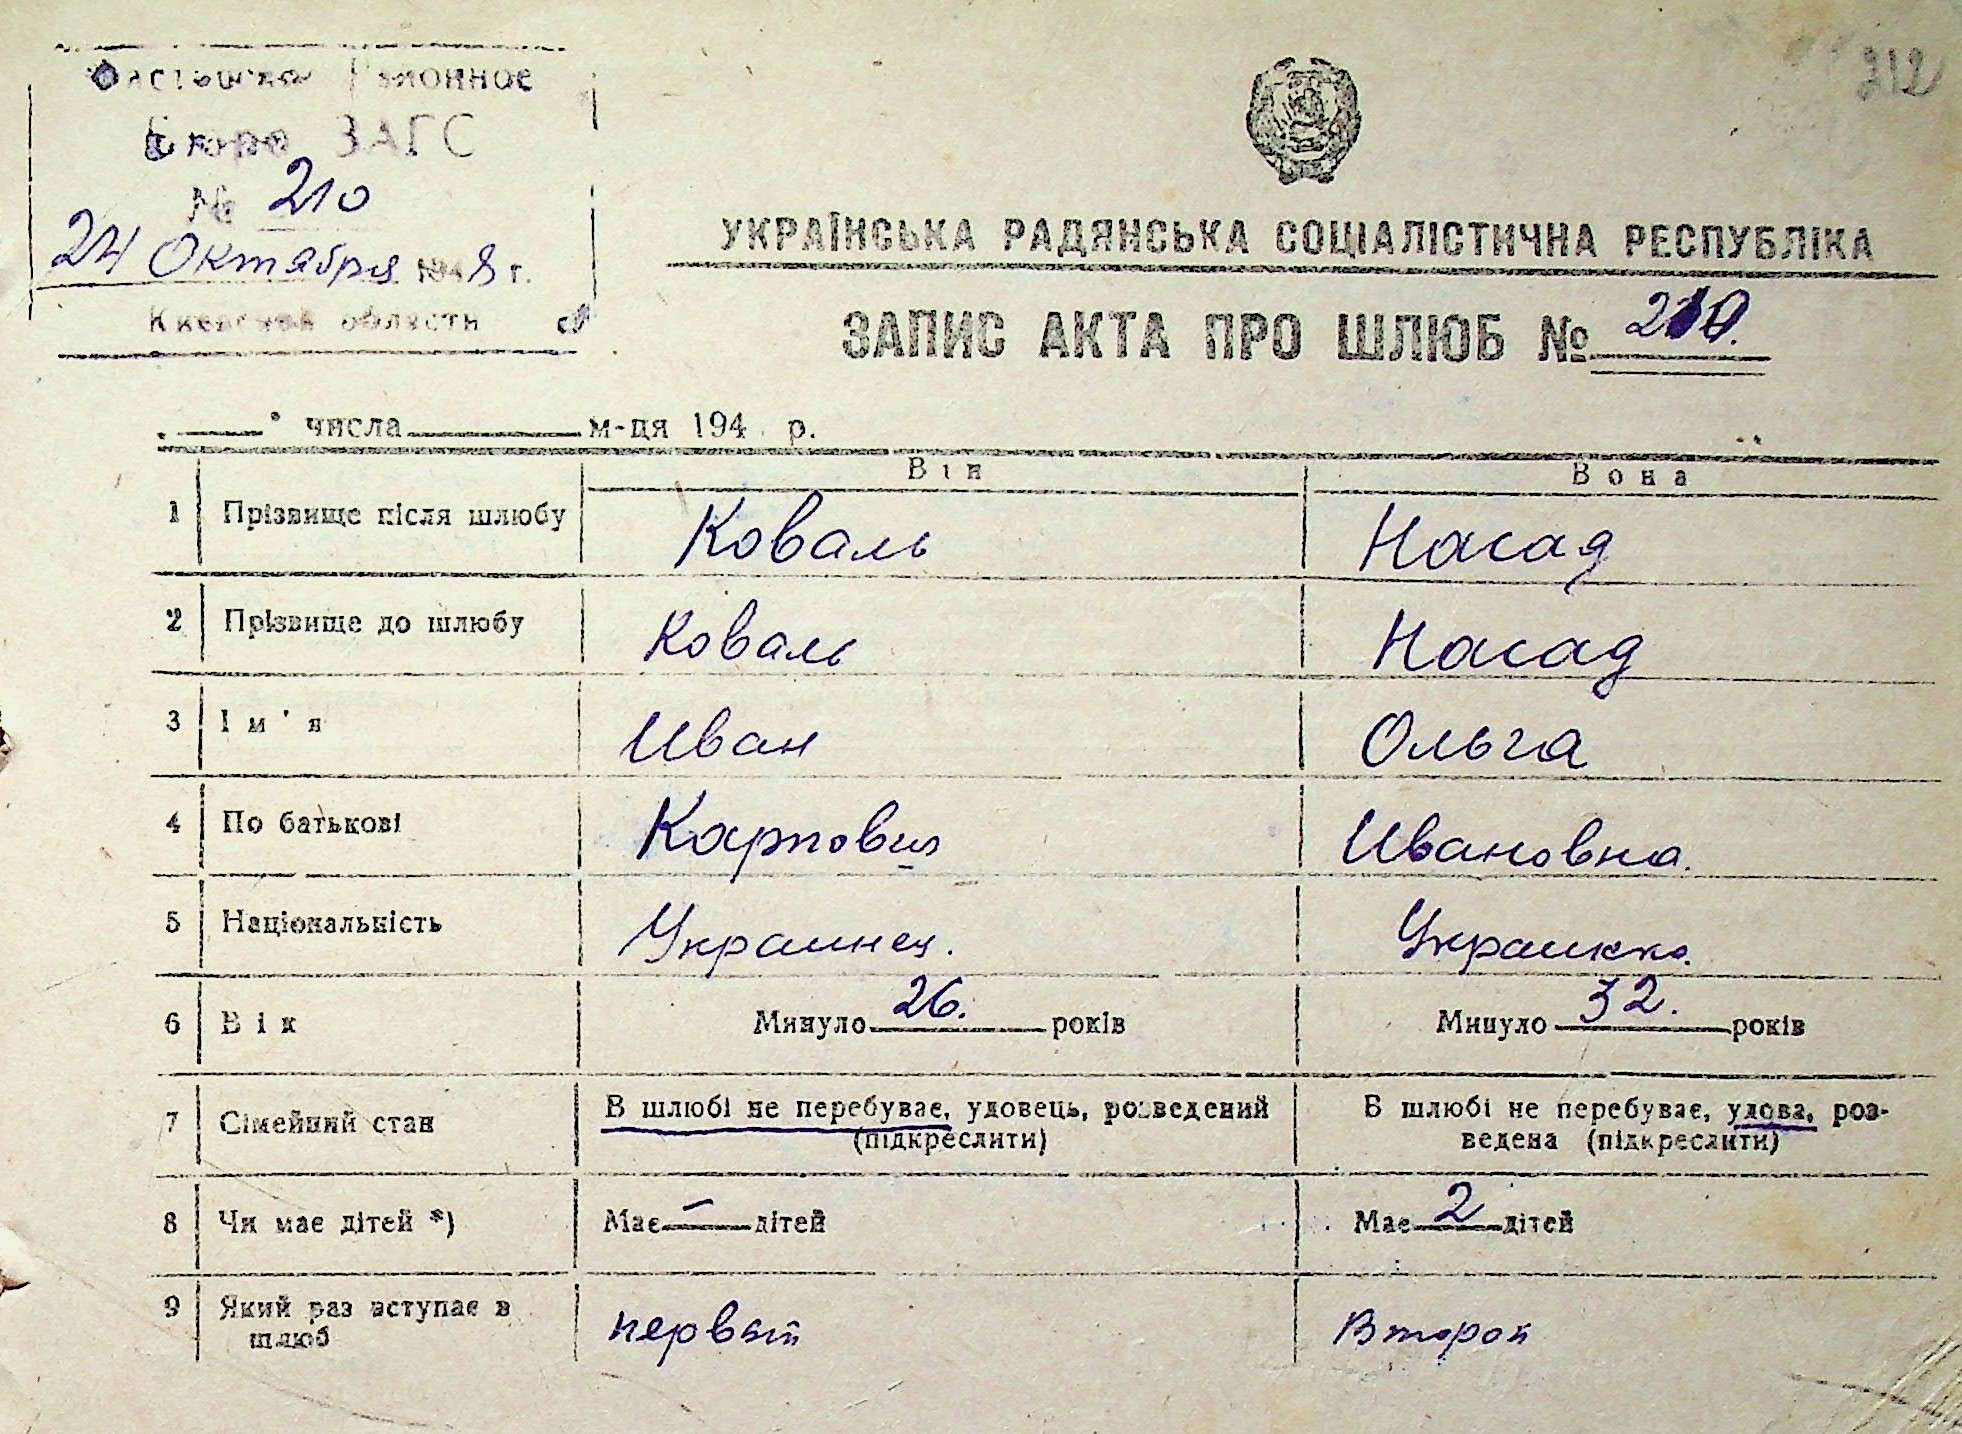 Районное
Бюро ЗАГС
№ 210
24 Октября 1948 г.
Киевской области
212
УКРАЇНСЬКА РАДЯНСЬКА СОЦІАЛІСТИЧНА РЕСПУБЛІКА
ЗАПИС АКТА ПРО ШЛЮБ № 210.
" числа м-ця 194 р.
Він Вона
1 Прізвище після шлюбу Коваль Насад
2 Прізвище до шлюбу Коваль Насад
3 Ім'я Иван Ольга
4 По батькові Карпович Ивановна.
5 Національність Украинец. Украинка.
6 Вік Минуло 26. років Минуло 32. років
7 Сімейний стан В шлюбі не перебуває, удовець, розведений В шлюбі не перебуває, удова, роз-
(підкреслити) ведена (підкреслити)
8 Чи має дітей *) Має – дітей Має 2 дітей
9 Який раз вступає в первый Второй
шлюб